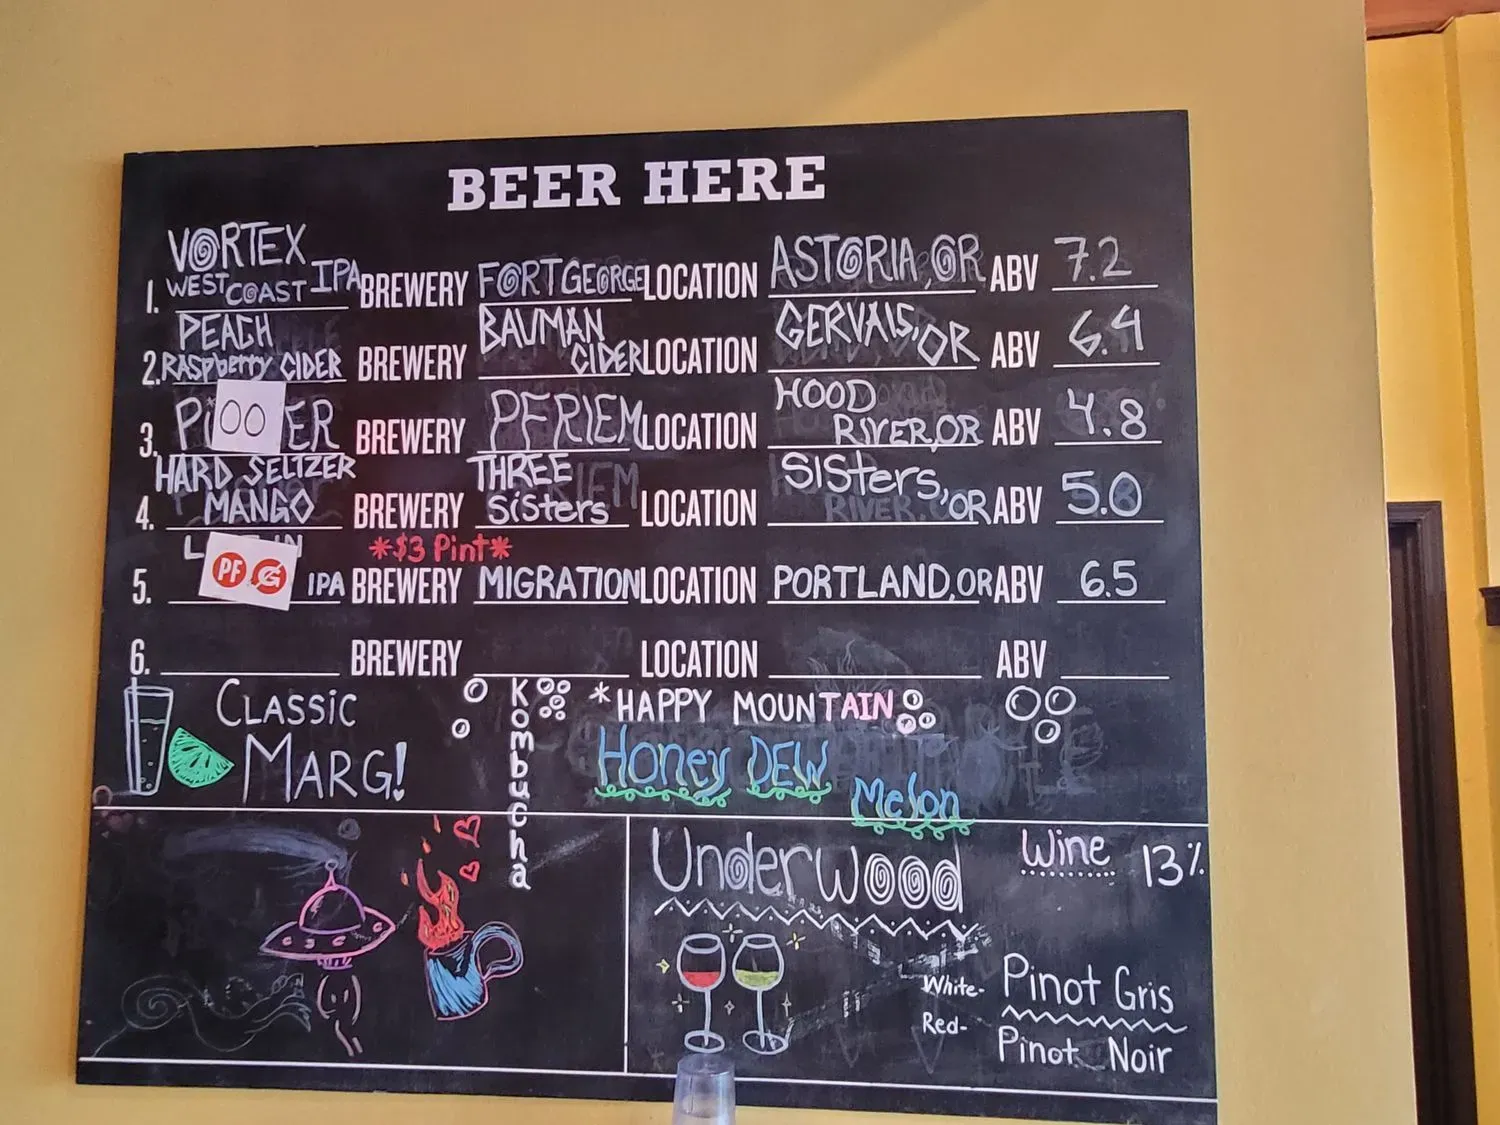 BEER HERE
VORTEX
1. WEST COAST IPA BREWERY FORT GEORGE LOCATION ASTORIA, OR ABV 7.2
PEACH
2. RASpberry CIDER BREWERY BAUMAN CIDER LOCATION GERVAIS, OR ABV 6.4
3. ER BREWERY PFRIEM LOCATION HOOD RIVER, OR ABV 4.8
HARD SELTZER
4. MANGO BREWERY THREE Sisters LOCATION SISters, OR ABV 5.0
*$3 Pint*
PF G
5. IPA BREWERY MIGRATION LOCATION PORTLAND, OR ABV 6.5
6. BREWERY LOCATION ABV
CLASSIC
MARG!
Kombucha
*HAPPY MOUNTAIN
Honey DEW
Melon
Underwood
Wine 13%
White- Pinot Gris
Red- Pinot Noir